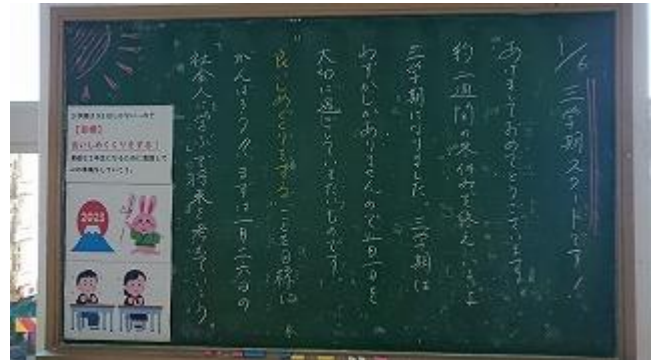 1/6 三学期スタートです！
あけましておめでとうございます。
約二週間の冬休みを終え、いよいよ
三学期になりました。三学期は
わずかしかありませんので一日一日を
大切に過ごしていきたいものです。
"良いしめくくりをする"ことを目標に
がんばろう!! まずは一月二六日の
社会人に学ぶで将来を考えていこう
【目標】
良いしめくくりをする！
2025